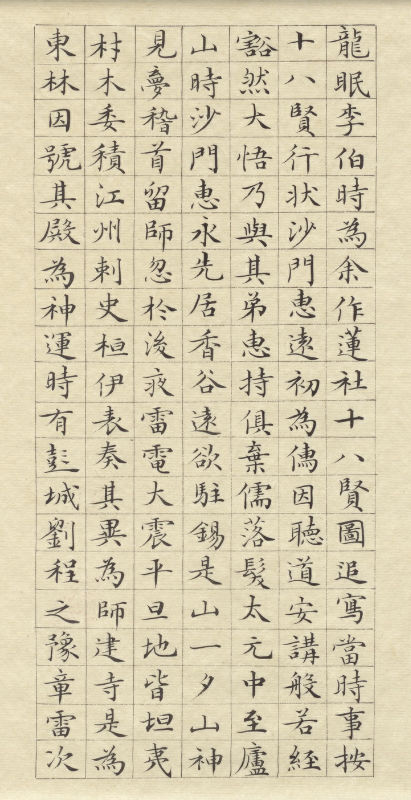 龍眠李伯時為余作蓮社十八賢圖追寫當時事按
十八賢行狀沙門惠遠初為儒因聽道安講般若經
豁然大悟乃與其弟惠持俱棄儒落髮太元中至廬
山時沙門惠永先居香谷遠欲駐錫是山一夕山神
見夢稽首留師忽於後夜雷電大震平旦地皆坦夷
材木委積江州刺史桓伊表奏其異為師建寺是為
東林因號其殿為神運時有彭城劉程之豫章雷次